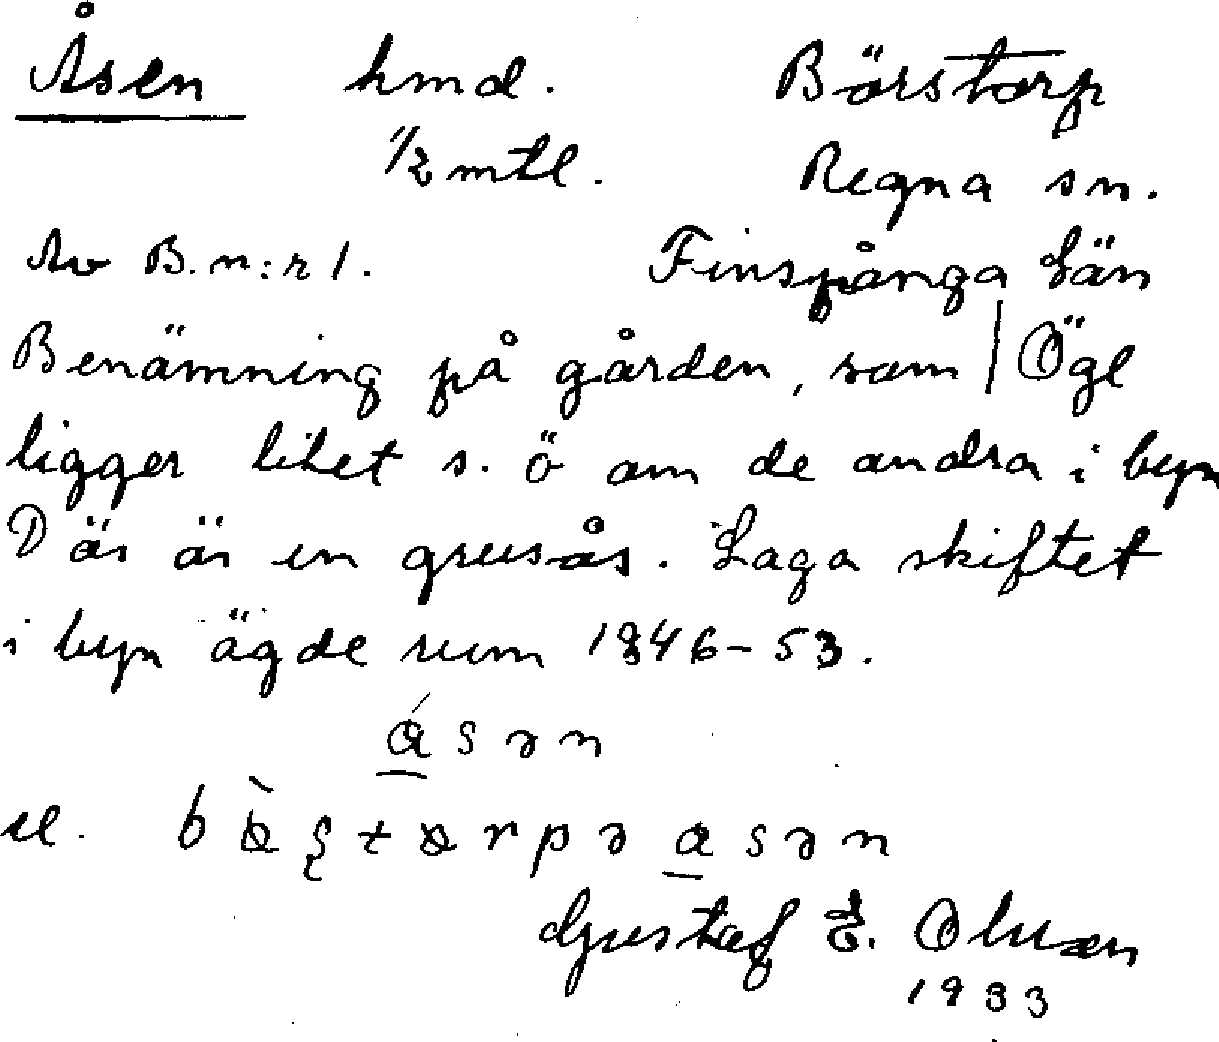 Åsen hmd. Börstorp
1/2 mtl. Regna sn.
Av B. n:r 1. Finspånga Län
Benämning på gården, som | Ögl
ligger litet s. ö om de andra i byn
Där är en grusås. Laga skiftet
i byn ägde rum 1846-53.
sənn
Gustaf E. Olsson
1933